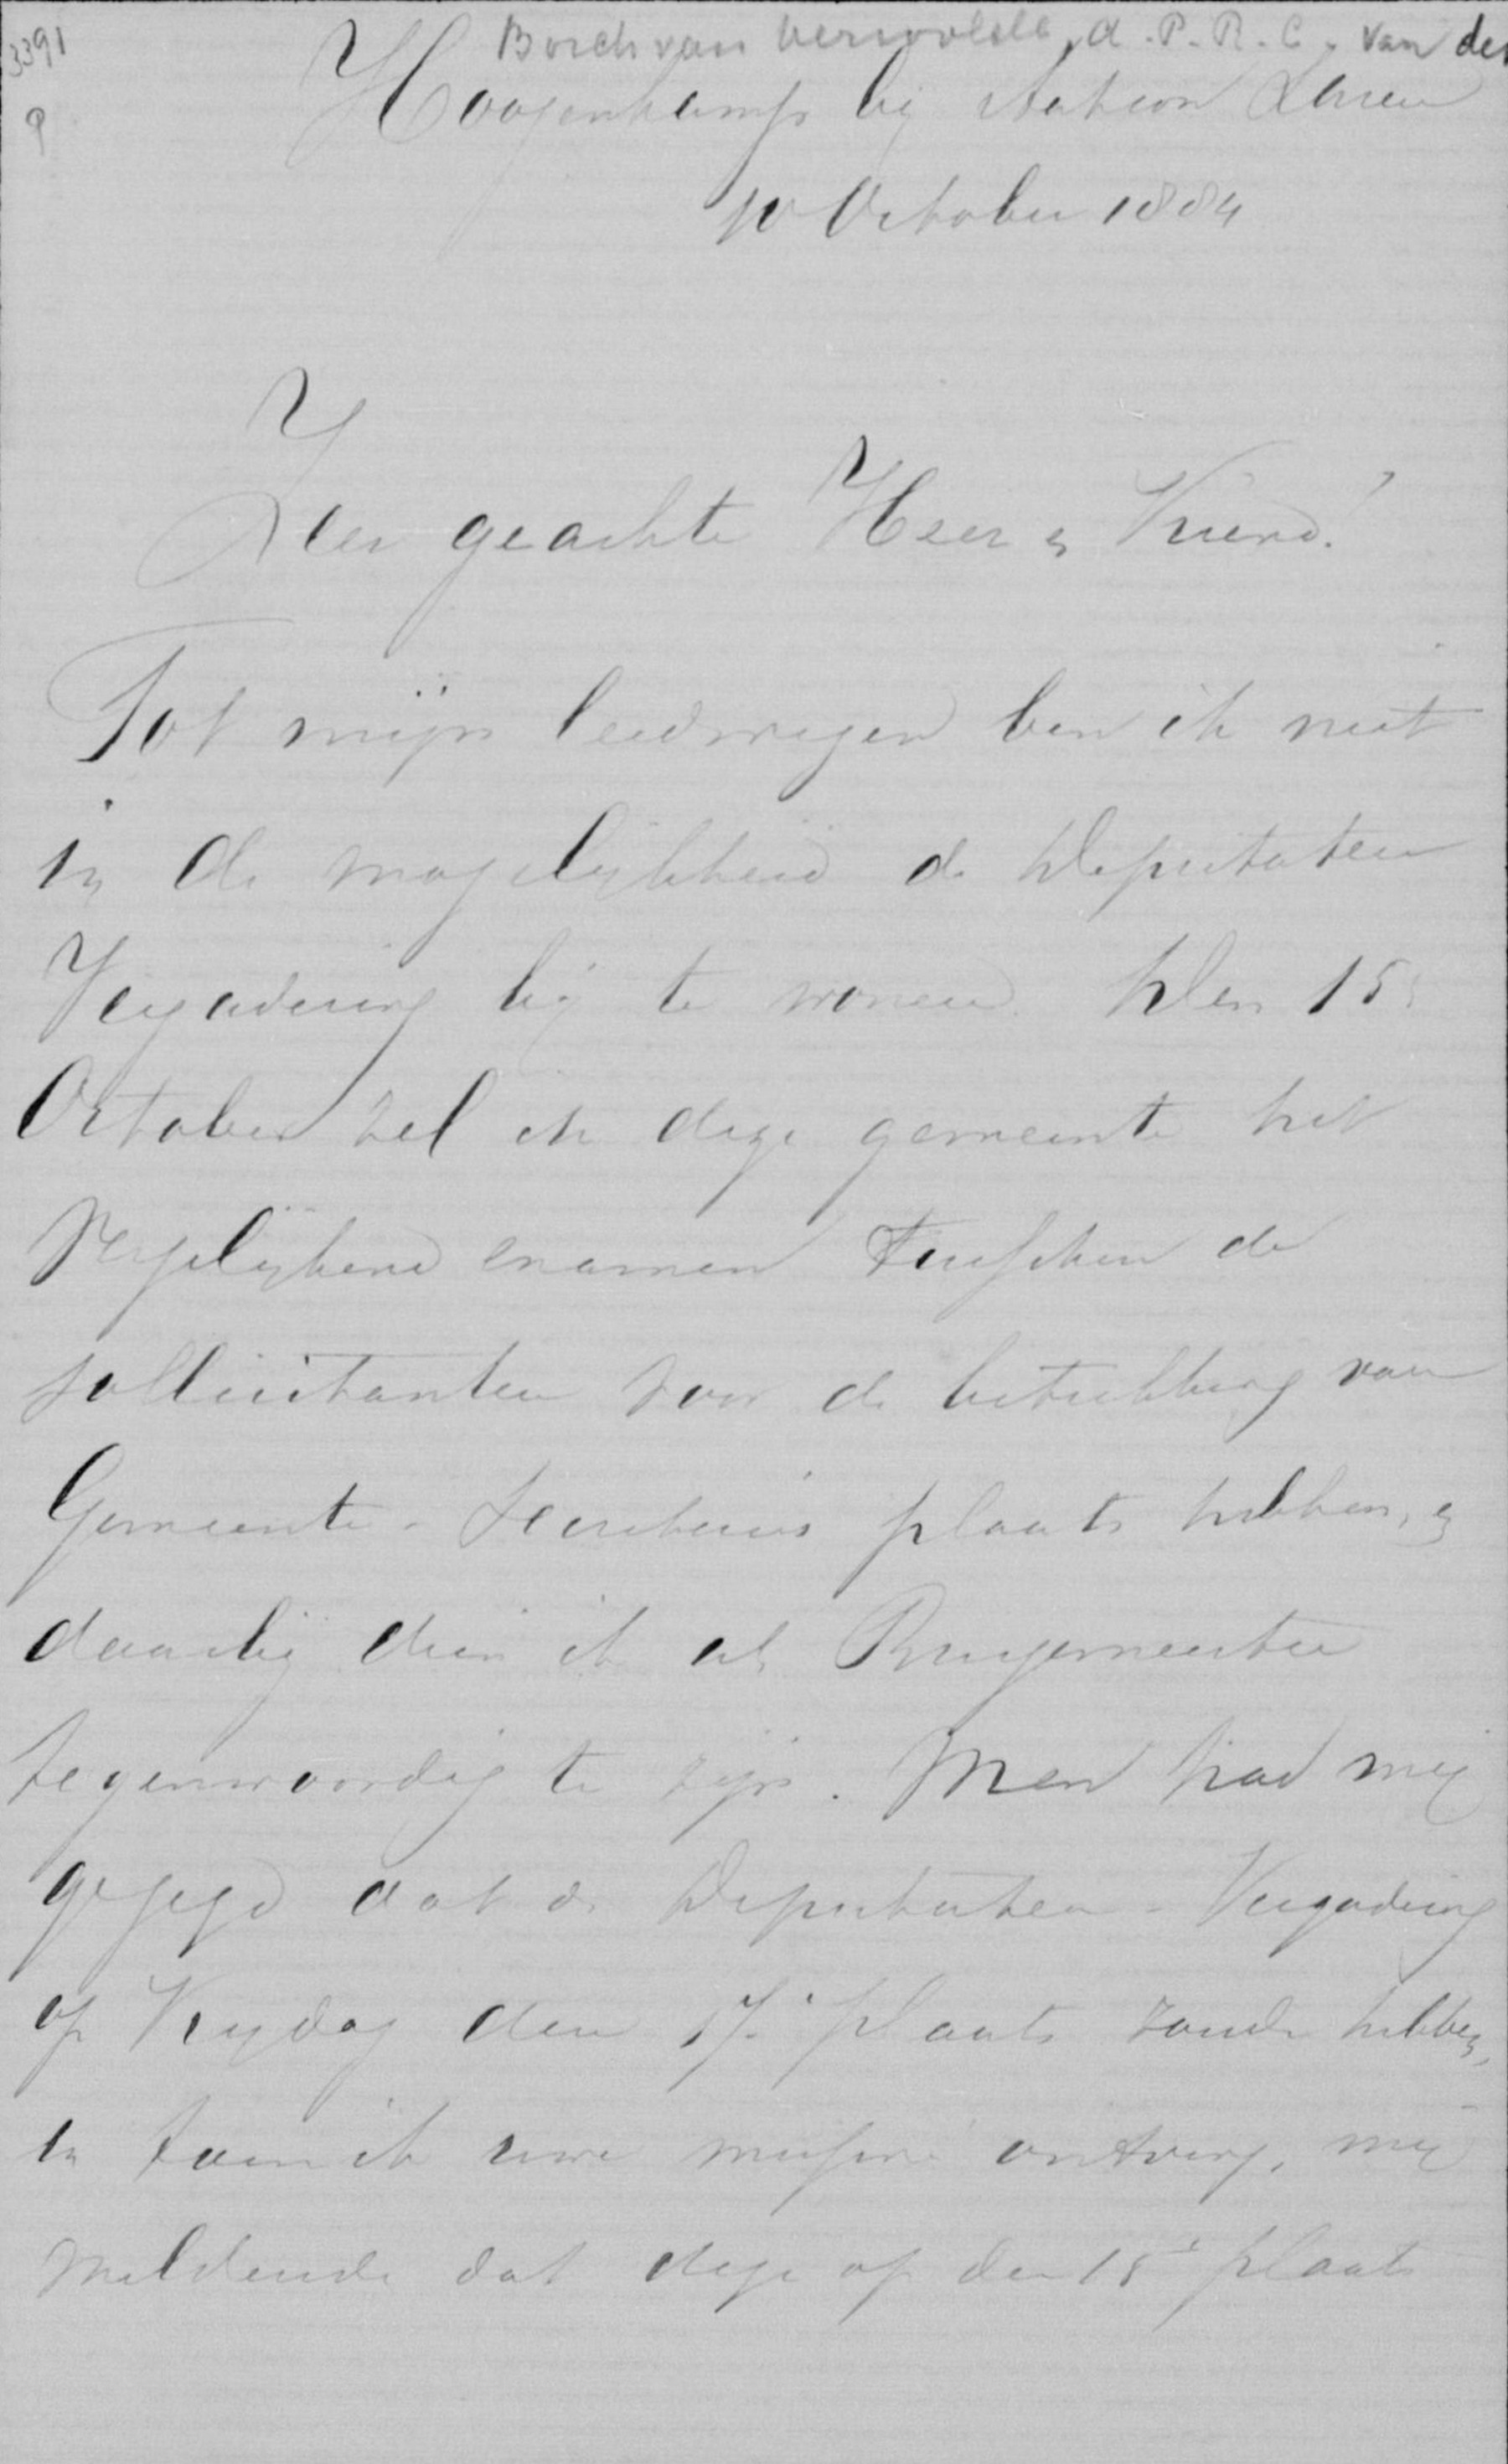 3391
9
Borch van Verwolde, A.P.R.C. van der
Hoogenkamp bij station Laren
10 October 1884
Zeer geachte Heer & Vriend!
Tot mijn leedwezen ben ik niet
in de mogelijkheid de Deputaten
Vergadering bij te wonen. Den 15e
October zal in deze gemeente het
Vergelijkend examen tusschen de
sollicitanten voor de betrekking van
Gemeente-Secretaris plaats hebben, &
daarbij dien ik als Burgemeester
tegenwoordig te zijn. Men had mij
gezegd dat de Deputaten-Vergadering
op Vrijdag den 17e plaats zoude hebben,
en toen ik uwe missive ontving, mij
meldende dat deze op den 15e plaats